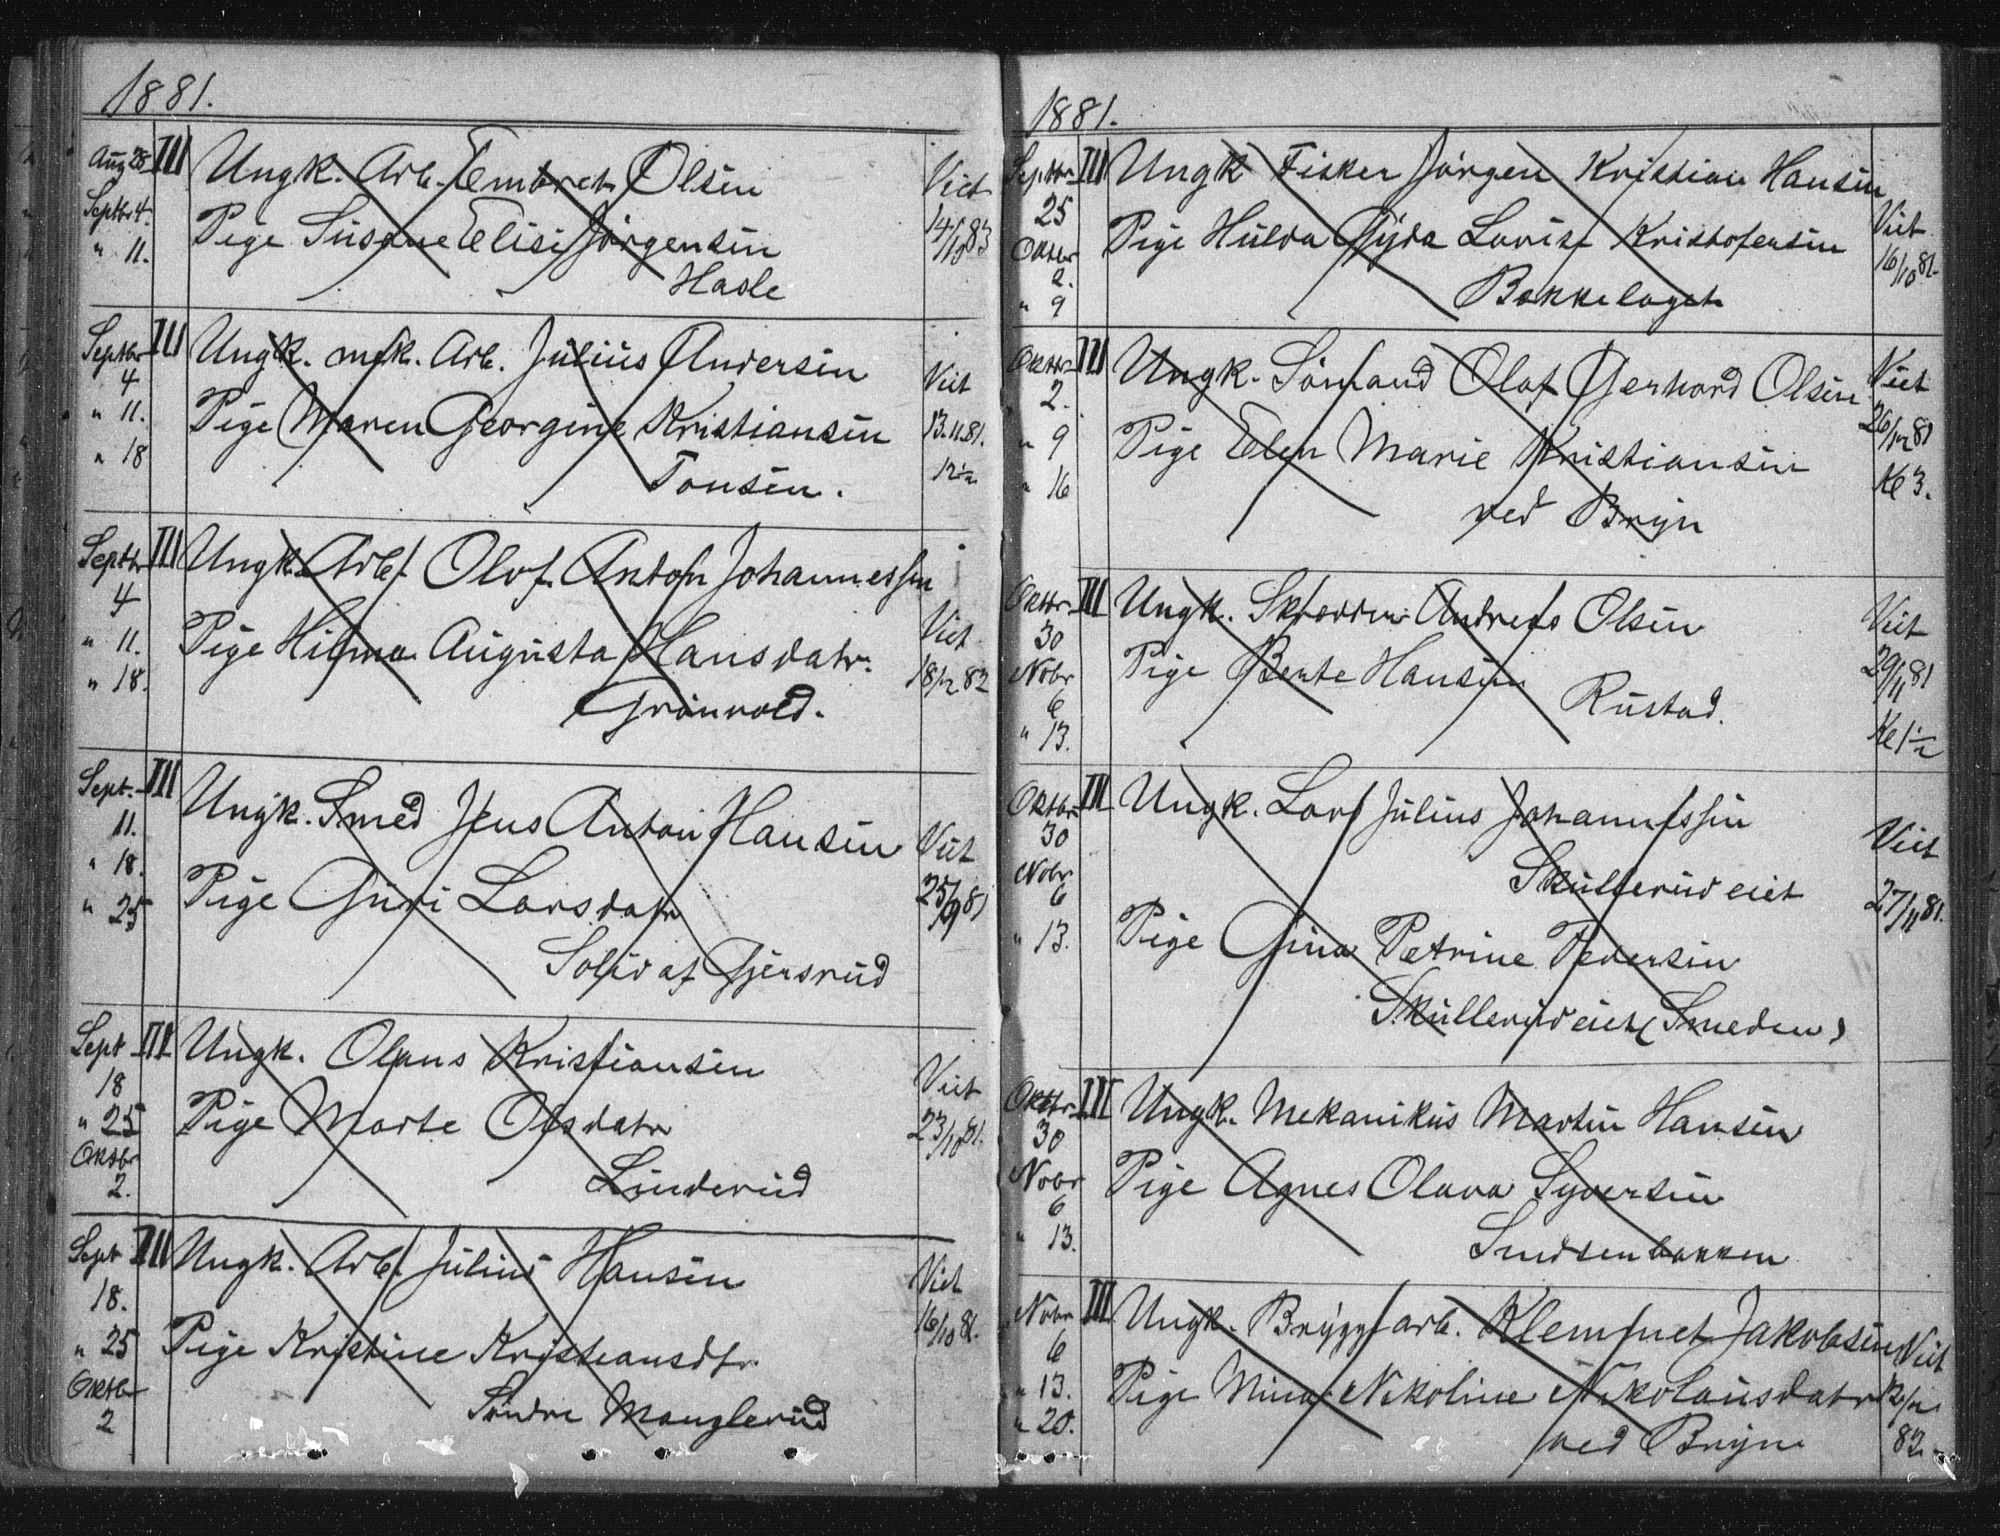 1881.
Aug 28 III Ungk. Arb. Embret Olsen Viet
Septbr 4. Pige Susane Elise Jörgensen 14/10 83
" 11. Hasle
Septbr III Ungk. mek. Arb. Julius Andersen Viet
4
" 11. Pige Maren Georgine Kristiansen 13.11.81.
" 18 Tonsen. 12½
Septbr III Ungk. Arb. Olof Anton Johannessen
4 Viet
" 11. Pige Hilma Augusta Hansdatr. 18/12 82
" 18. Grönvold.
Sept. III Ungk. Smed Jens Anton Hansen Viet
11.
" 18. Pige Guri Larsdatr 25/9 81
" 25 Solid af Gjersrud
Sept III Ungk. Olaus Kristiansen Viet
18
" 25 Pige Marte Olsdatr 23/10 81.
Oktbr
2. Linderud
Sept III Ungk. Arb. Julius Hansen Viet
18. 16/10 81.
" 25 Pige Kristine Kristiansdtr.
Oktbr
2 Söndre Manglerud
1881.
Septbr III Ungk Fisker Jörgen Kristian Hansen Viet
25 Pige Hulda Gyda Lovise Kristofersen 16/10 81.
Oktbr
2. Bækkelaget
" 9
Oktbr III Ungk. Sömand Olaf Gerhard Olsen Viet
2. 26/12 81
" 9 Pige Elen Marie Kristiansen Kl 3.
" 16 ved Bryn
Oktbr III Ungk. Skrædder Andreas Olsen Viet
30
Nobr Pige Bente Hansen 29/11 81
6 Rustad.
" 13. Kl 1½
Oktbr III Ungk. Lars Julius Johannessen Viet
30
Nobr Skullerud eiet 27/11 81.
6
" 13. Pige Gina Petrine Pedersen
Skullerud eiet (Smeden)
Oktbr III Ungk. Mekanikus Martin Hansen
30
Nobr Pige Agnes Olava Syversen
6
" 13. Simensenbakken
Nobr III Ungk. Brygg. arb. Klemmet Jakobsen Viet
6
" 13. Pige Mina Nikoline Nikolausdatr
" 20. ved Bryn 82.